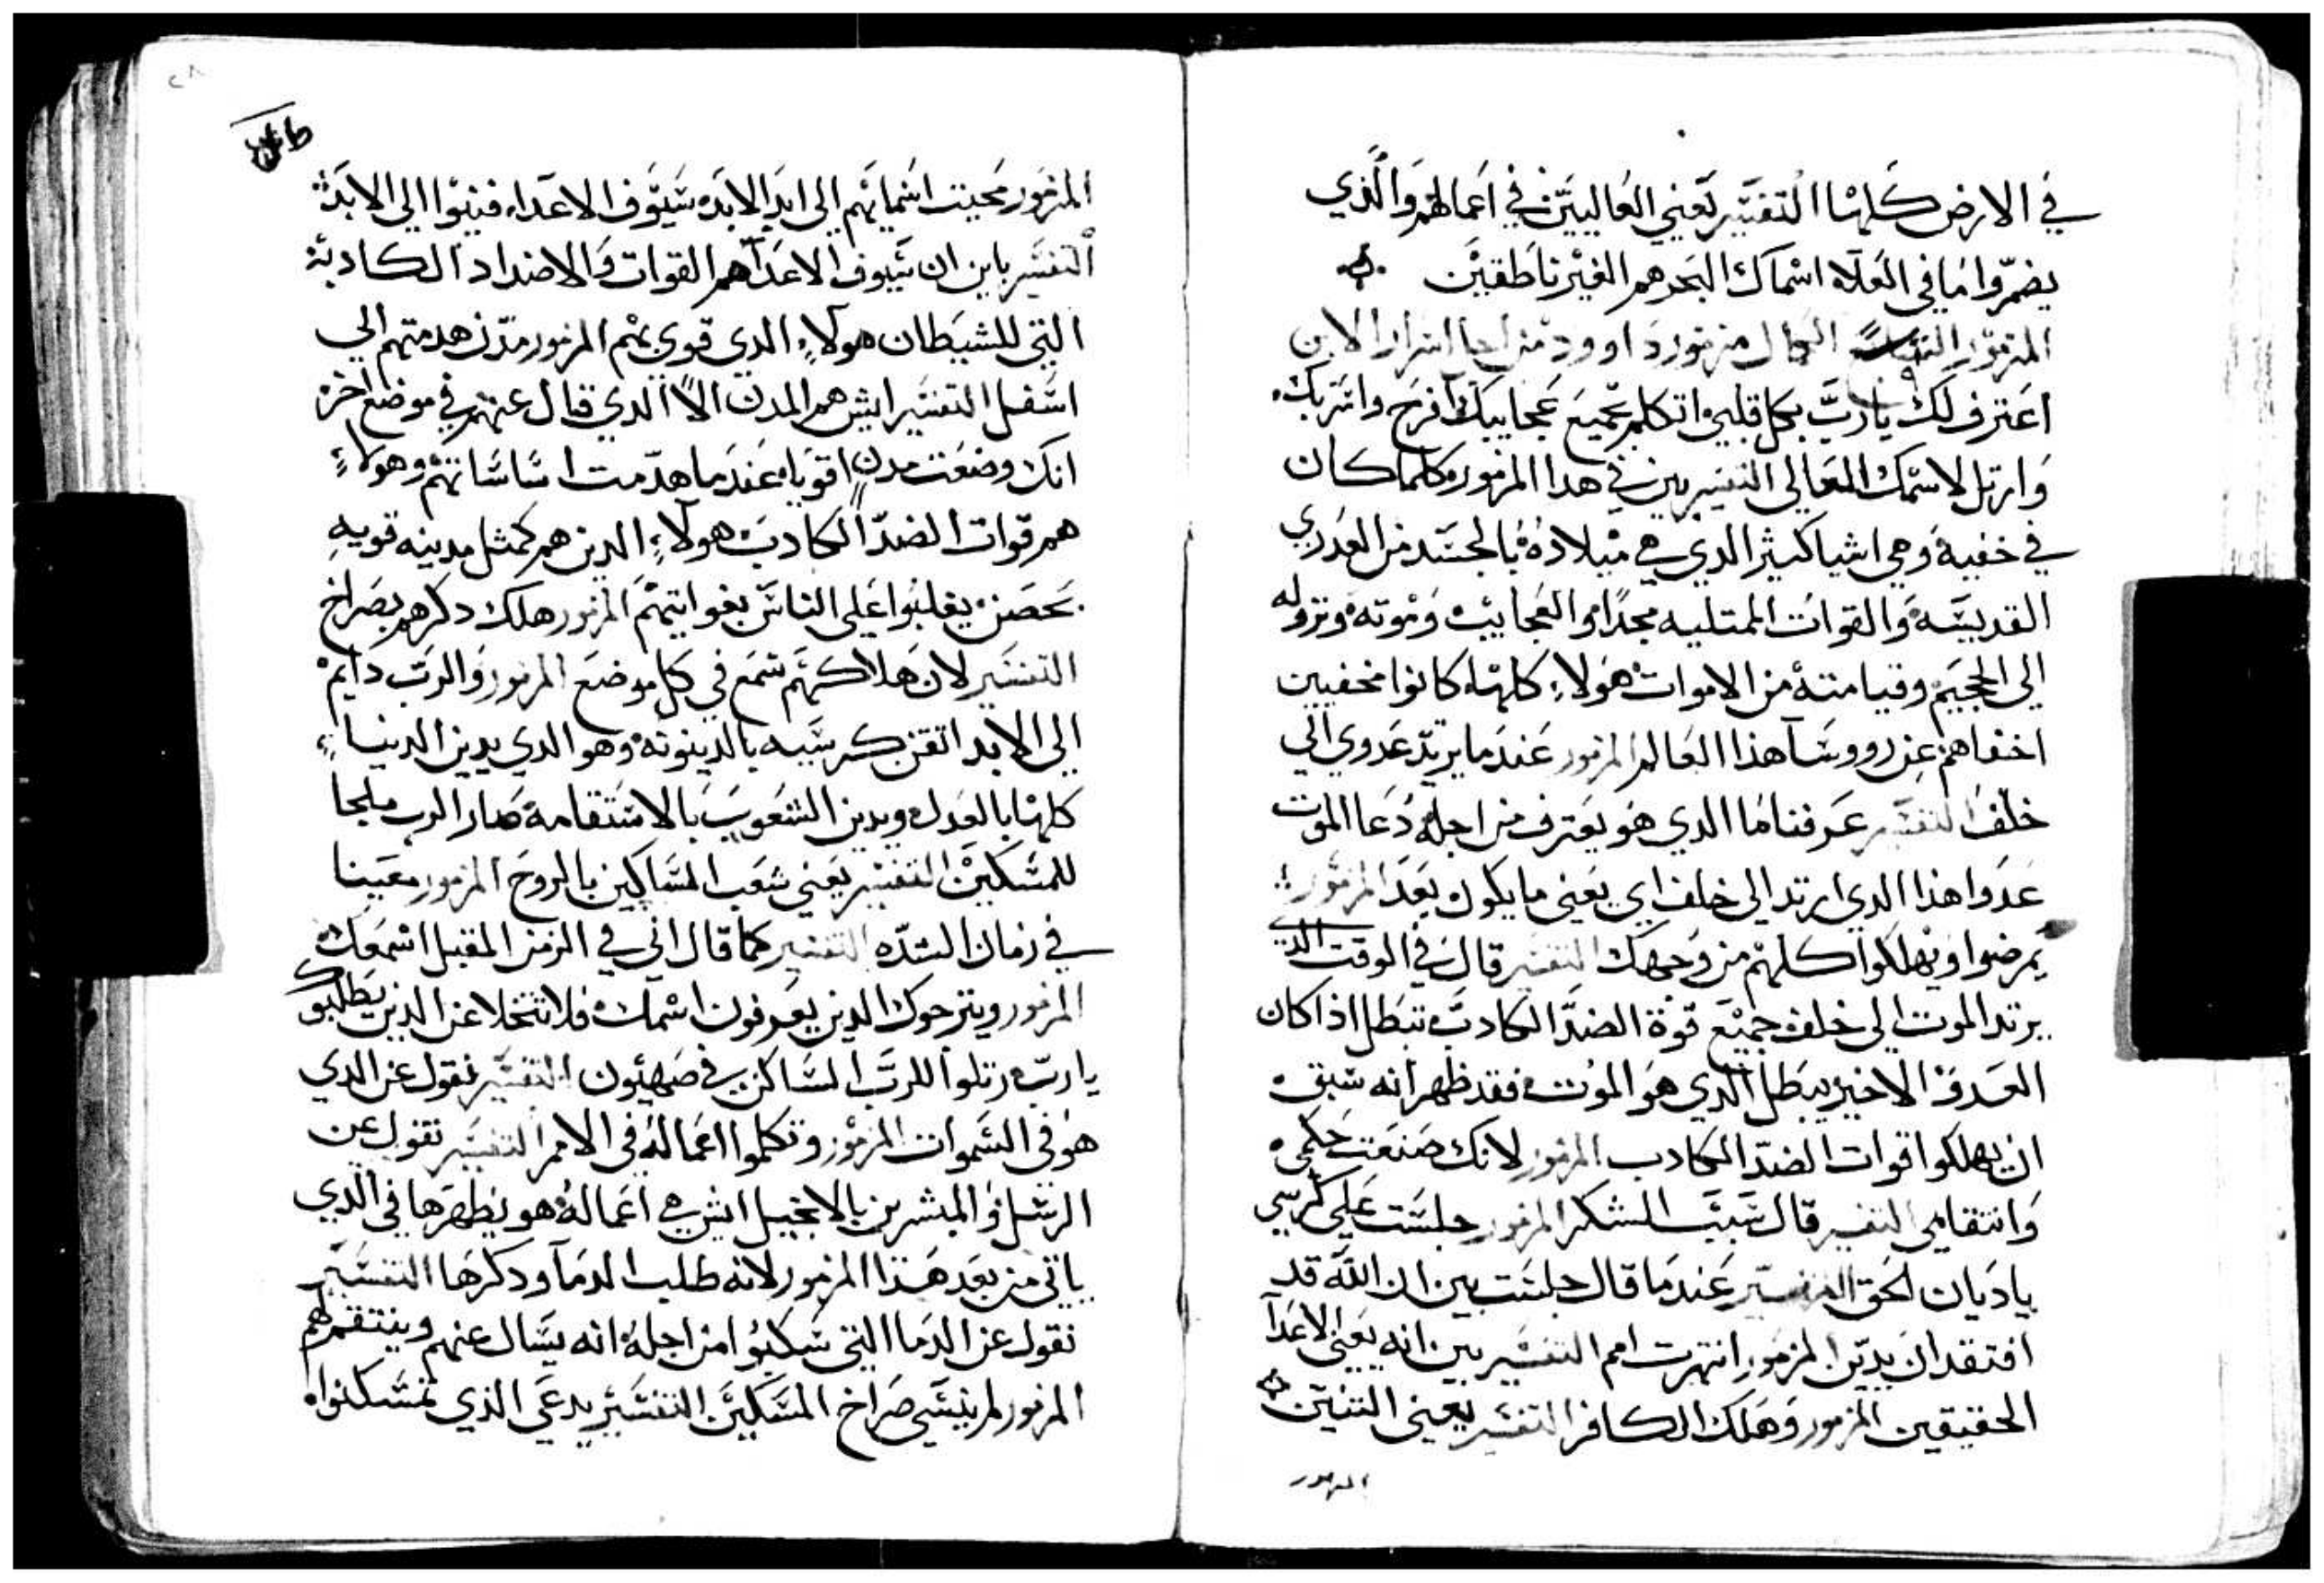 في الارض كلها التفسير يعني العاليين في اعمالهم والذي
يضمروا ما في العلاه اسماك البحر هم الغير ناطقين
المزمور الكمال مزمور داوود من اجل اسرار الابن
اعترف لك يا رب بكل قلبي اتكلم بجميع عجايبك افرح واسر بك
وارتل لاسمك العالي التفسير بين في هدا المزمور كلما كان
في خفية وهي اشيا كثير الدي هي ميلاده بالجسد من العدري
القديسه والقوات الممتليه مجدا والعجايب وموته ونزوله
الي الجحيم وقيامته من الاموات هولاء كلها كانوا مخفيين
اخفاهم عن رووسا هذا العالم المزمور عندما يرتد عدوي الي
خلف التفسير عرفنا ما الدي هو يعترف من اجله دعا الموت
عدوا هذا الدي ارتد الي خلف اي يعني ما يكون بعد المزمور
يمرضوا ويهلكوا كلهم من وجهك التفسير قال في الوقت الدي
يرتد الموت الي خلف جميع قوة الضد الكادب تبطل اذا كان
العدو الاخير يبطل الدي هو الموت فقد ظهر انه سبق
ان يهلكوا قوات الضد الكادب المزمور لانك صنعت حكمي
وانتقامي التفسير قال سبب الشكر المزمور جلست علي كرسي
يا ديان الحق التفسير عندما قال جلست بين ان الله قد
افتقد ان يدين المزمور انتهرت امم التفسير بين انه يعني الاعدا
الحقيقين المزمور وهلك الكافر التفسير يعني التنين
المزمور
المزمور محيت اسمايهم الي ابد الابده سيوف الاعداء فنيوا الي الابد
التفسير باين ان سيوف الاعدا هم القوات والاضداد الكادبة
التي للشيطان هولاء الدي قوي بهم المزمور مدن هدمتهم الي
اسفل التفسير ايش هم المدن الا الدي قال عنهم في موضع اخر
انك وضعت مدن اقوياء عندما هدمت اساساتهم وهولاء
هم قوات الضد الكادب هولاء الدين هم كمثل مدينه قويه
بحصن يغلبوا علي الناس بغوايتهم المزمور هلك دكرهم بصراخ
التفسير لان هلاكهم سمع في كل موضع المزمور والرب دايم
الي الابد اتقن كرسيه بالدينونه وهو الدي يدين الدنيا
كلها بالعدل ويدين الشعوب بالاستقامه صار الرب ملجا
للمسكين التفسير يعني شعب المساكين بالروح المزمور معينا
في زمان الشده التفسير كما قال اني في الزمن المقبل اسمعك
المزمور ويترجوك الدين يعرفون اسمك فلا تتخلا عن الذين يطلبوك
يا رب رتلوا للرب الساكن في صهيون التفسير نقول عن الدي
هو في السموات المزمور وتكلموا اعماله في الامم التفسير نقول عن
الرسل والمبشرين بالانجيل ايش هي اعماله هو يظهرها في الدي
ياتي من بعد هذا المزمور لانه طلب الدما ودكرها التفسير
نقول عن الدما التي سكبوا من اجله انه يسال عنهم وينتقم لهم
المزمور لم ينسي صراخ المسكين التفسير يدعي الذي تمسكنوا